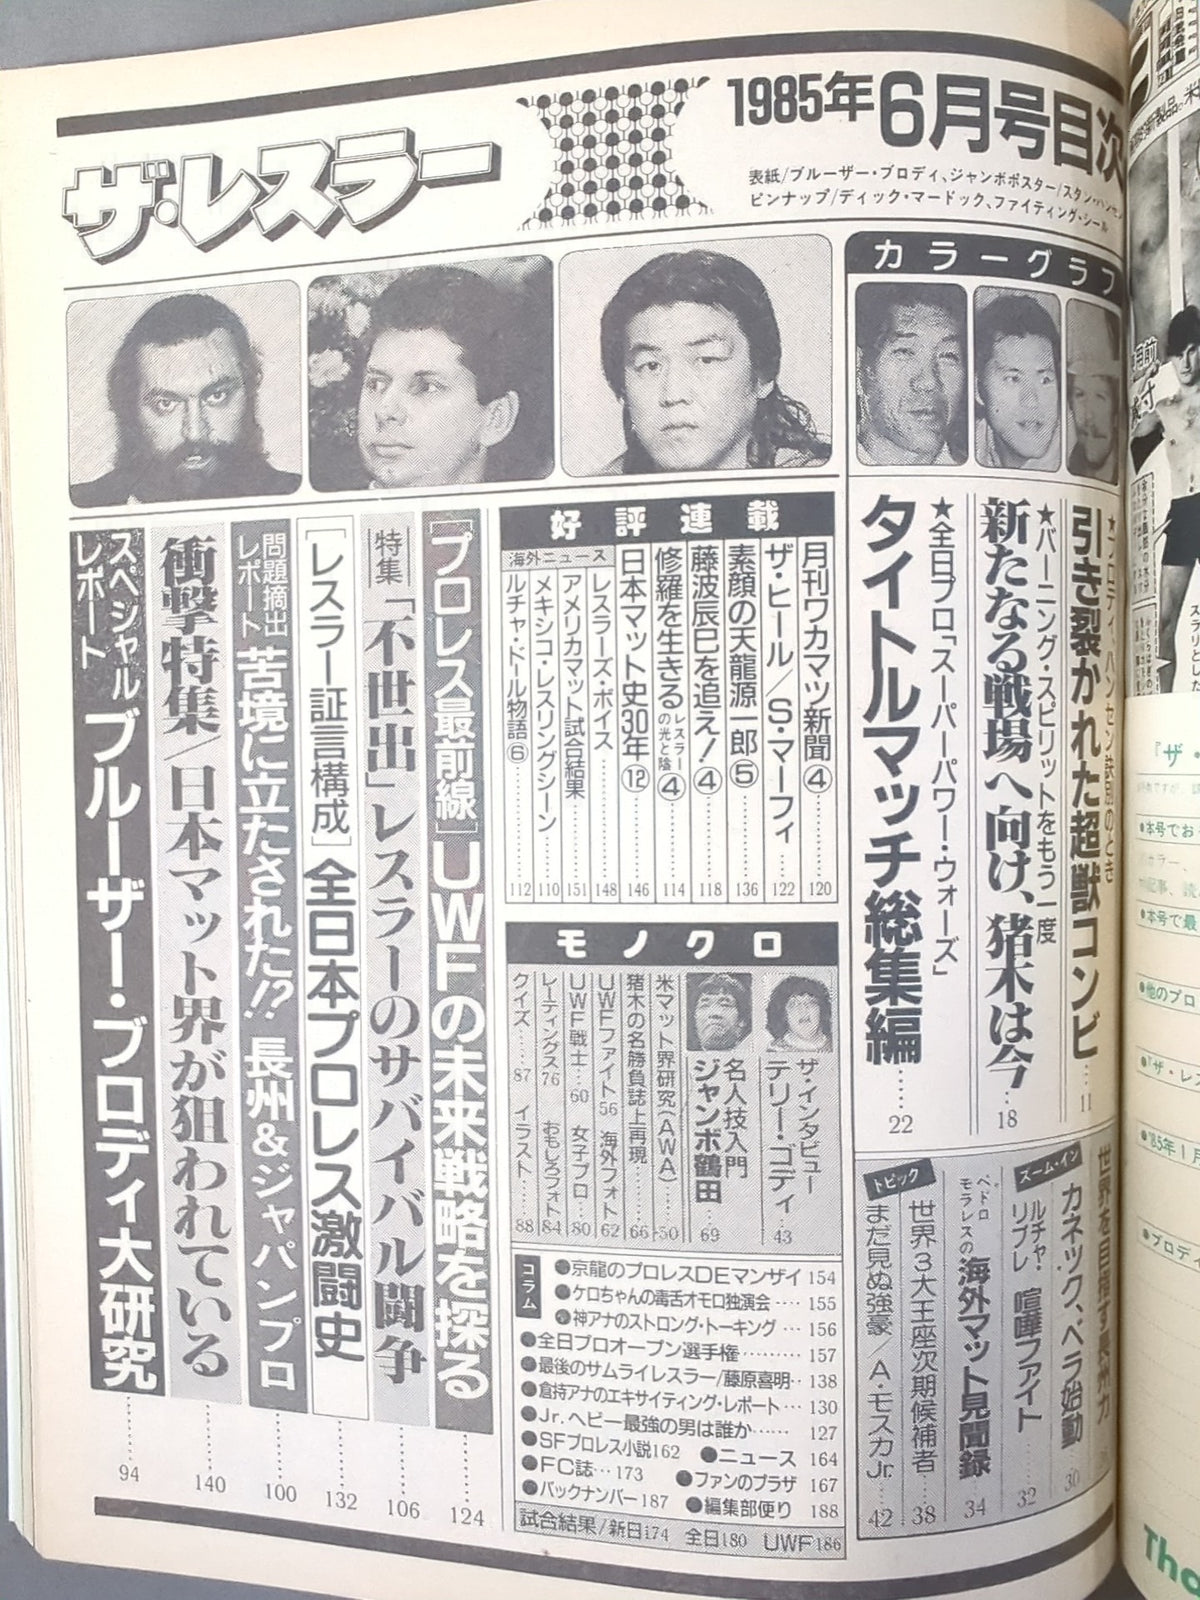 ザ・レスラー
1985年6月号目次
表紙/ブルーザー・ブロディ、ジャンボポスター/スタン・ハンセン
ピンナップ/ディック・マードック、ファイティング・シール
カラーグラフ
★ブロディ、ハンセン訣別のとき
引き裂かれた超獣コンビ…11
★バーニング・スピリットをもう一度
新たなる戦場へ向け、猪木は今…18
★全日プロ「スーパーパワー・ウォーズ」
タイトルマッチ総集編……22
世界を目指す長州力
ズーム・イン
カネック、ベラ始動……30
ルチャ・リブレ 喧嘩ファイト……32
ペドロ・モラレスの海外マット見聞録……34
トピック
世界3大王座次期候補者……38
まだ見ぬ強豪/A・モスカJr.…42
好評連載
月刊ワカマツ新聞④…120
ザ・ヒール/S・マーフィ…122
素顔の天龍源一郎⑤…136
藤波辰巳を追え!④…118
修羅を生きる レスラーの光と陰④…114
日本マット史30年⑫…146
海外ニュース
レスラーズ・ボイス…148
アメリカマット試合結果…151
メキシコ・レスリングシーン…110
ルチャ・ドール物語⑥…112
モノクロ
ザ・インタビュー
テリー・ゴディ…43
名人技入門
ジャンボ鶴田…69
米マット界研究(AWA)…50
猪木の名勝負誌上再現…66
UWFファイト56 海外フォト62
UWF戦士…60 女子プロ…80
レーティングス76 おもしろフォト84
クイズ…87 イラスト…88
コラム
●京龍のプロレスDEマンザイ154
●ケロちゃんの毒舌オモロ独演会…155
●神アナのストロング・トーキング…156
●全日プロオープン選手権………157
●最後のサムライレスラー/藤原喜明…138
●倉持アナのエキサイティング・レポート…130
●Jr.ヘビー最強の男は誰か……127
●SFプロレス小説162 ●ニュース164
●FC誌…173 ●ファンのプラザ167
●バックナンバー187 ●編集部便り188
試合結果/新日174 全日180 UWF186
[プロレス最前線]UWFの未来戦略を探る……124
特集「不世出」レスラーのサバイバル闘争……106
[レスラー証言構成]全日本プロレス激闘史……132
問題摘出レポート 苦境に立たされた!? 長州&ジャパンプロ……100
衝撃特集/日本マット界が狙われている……140
スペシャルレポート ブルーザー・ブロディ大研究……94
『ザ・
●本号でお
●本号で最
●他のプロ
●『ザ・レス
●'85年1月
●ブロディ
Tha